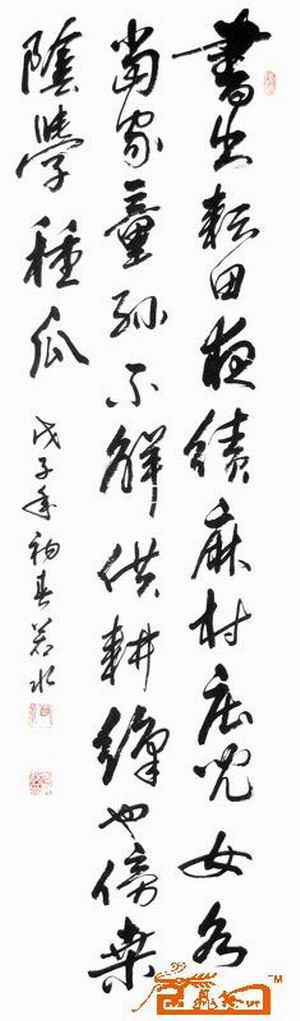 晝出耘田夜績麻村庄兒女各
當家童孫不解供耕織也傍桑
陰學種瓜 戊子年初春若水